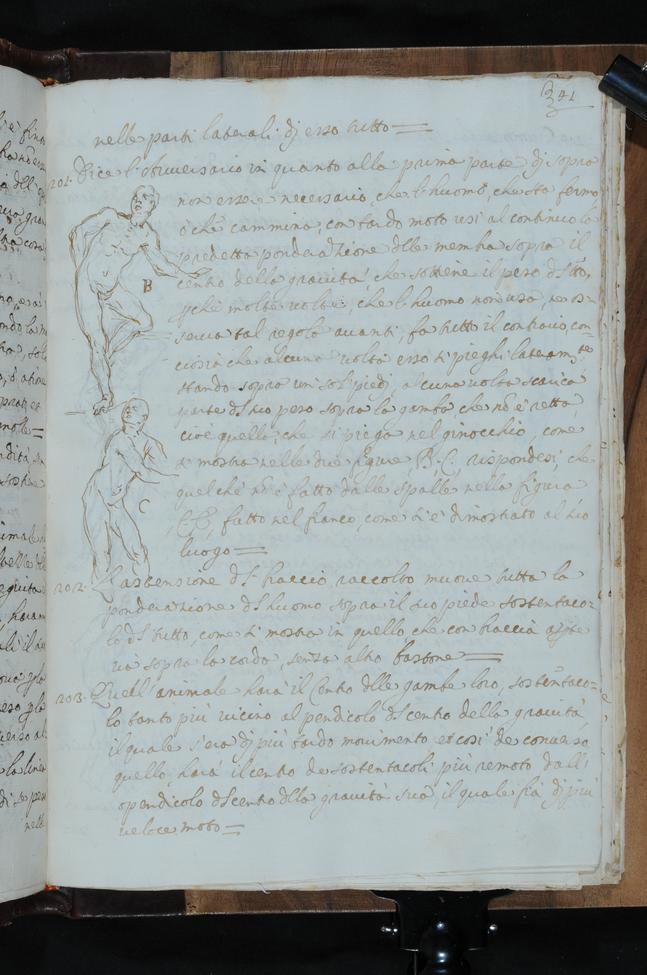 341
nelle parti laterali di esso tutto =
201. Dice l'Avversario in quanto alla prima parte di sopra
non essere necessario, che l'huomo, che sta fermo
ò che cammina, con tardo moto usi al continuo la
predetta ponderazione delle membra sopra il
centro della gravità, che sostiene il peso del tutto,
perche molte volte, che l'huomo non usa, ne os-
serva tal regola avanti, fà tutto il contrario, con
ciosia che alcuna volta esso si pieghi lateralmte
stando sopra un sol piedi, alcuna volta scarica
parte del suo peso sopra la gamba che nõ è retta
cioè quello, che si piega nel ginocchio, come
si mostra nelle due figure B. C. rispondesi, che
quel che nõ è fatto dalle spalle nella figura
C, è fatto nel fianco, come si è dimostrato al suo
luogo =
B
C
202. L'astensione del braccio raccolto muove tutta la
ponderazione del huomo sopra il suo piede sostentaco-
lo del tutto, come si mostra in quello che con braccia aperte
và sopra la corda senza altro bastone =
203. Quell'animale harà il Centro delle gambe loro, sostentaco-
lo tanto più vicino al pendicolo del centro della gravità
il quale sera di più tardo movimento et così de converso
quello harà il centro de sostentacoli più remoto dal
pendicolo del centro della gravità sua, il quale fia di più
veloce moto =